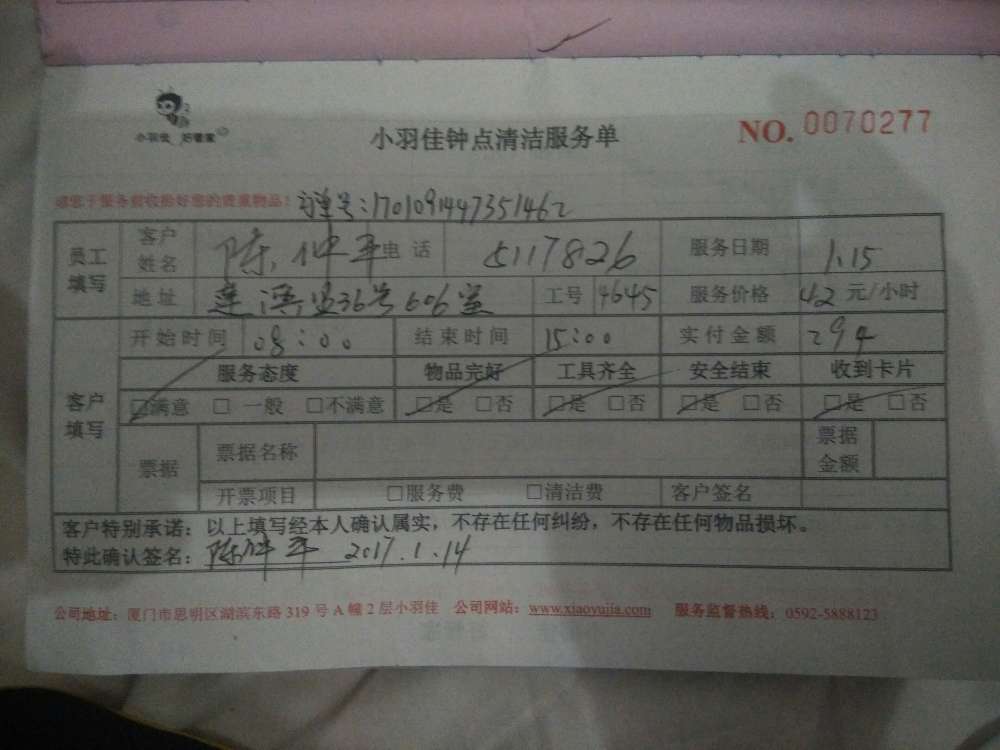 小羽佳 好管家
小羽佳钟点清洁服务单 NO. 0070277
请您于服务前收拾好您的贵重物品! 订单号:1701091447351462
员工填写 客户姓名 陈 平 电话 5117826 服务日期 1.15
地址 莲 36号606室 工号 4645 服务价格 42 元/小时
客户填写 开始时间 08:00 结束时间 15:00 实付金额 294
服务态度 物品完好 工具齐全 安全结束 收到卡片
☑满意 □一般 □不满意 ☑是 □否 ☑是 □否 ☑是 □否 ☑是 □否
票据 票据名称 票据金额
开票项目 □服务费 □清洁费 客户签名
客户特别承诺:以上填写经本人确认属实,不存在任何纠纷,不存在任何物品损坏。
特此确认签名:陈 平 2017.1.14
公司地址:厦门市思明区湖滨东路319号A幢2层小羽佳 公司网站:www.xiaoyujia.com 服务监督热线:0592-5888123